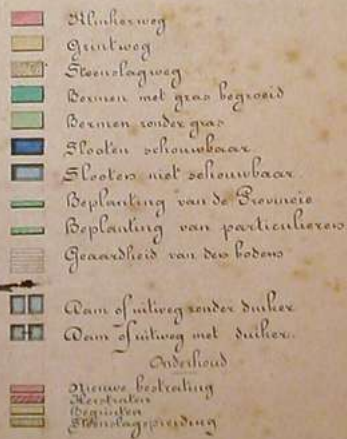 Klinkerweg
Grintweg
Steenslagweg
Bermen met gras begroeid
Bermen zonder gras
Slooten schouwbaar
Slooten niet schouwbaar.
Beplanting van de Provincie
Beplanting van particulieren
Geaardheid van den bodem
Dam of uitweg zonder duiker
Dam of uitweg met duiker.
Onderhoud
Nieuwe bestrating
Herstraten
Begrinten
Steenslagspreiding